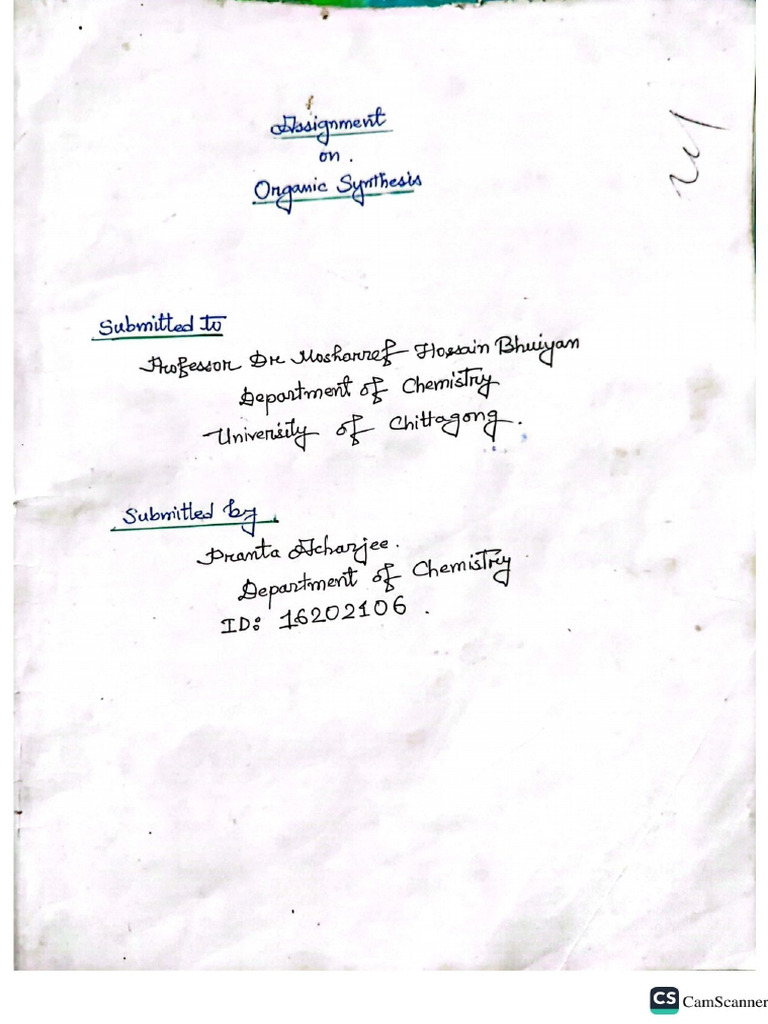 Assignment
on.
Organic Synthesis
Submitted to
Professor Dr Mosharref Hossain Bhuiyan
Department of Chemistry
University of Chittagong.
Submitted by
Pranta Acharjee.
Department of Chemistry
ID: 16202106.
CS CamScanner